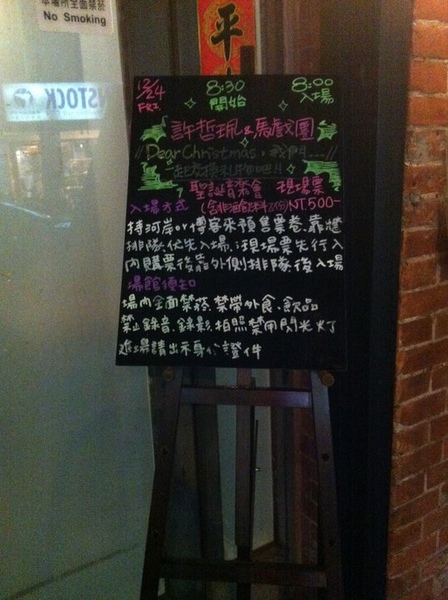 本場所全面禁菸
No Smoking
平
NSTOCK
12/24 8:30 8:00
FRI. 開始 入場
許哲珮&馬戲團
//Dear Christmas,我們...//
聖誕音樂會 現場票
入場方式 (含非酒飲料1份)NT.500-
持河岸or博客來預售票卷,靠燈
排隊,優先入場,現場票先行入
內購票後靠外側排隊,後入場
場館須知
場內全面禁菸.禁帶外食、飲品
禁止錄音.錄影.拍照禁用閃光灯
進場請出示身分證件